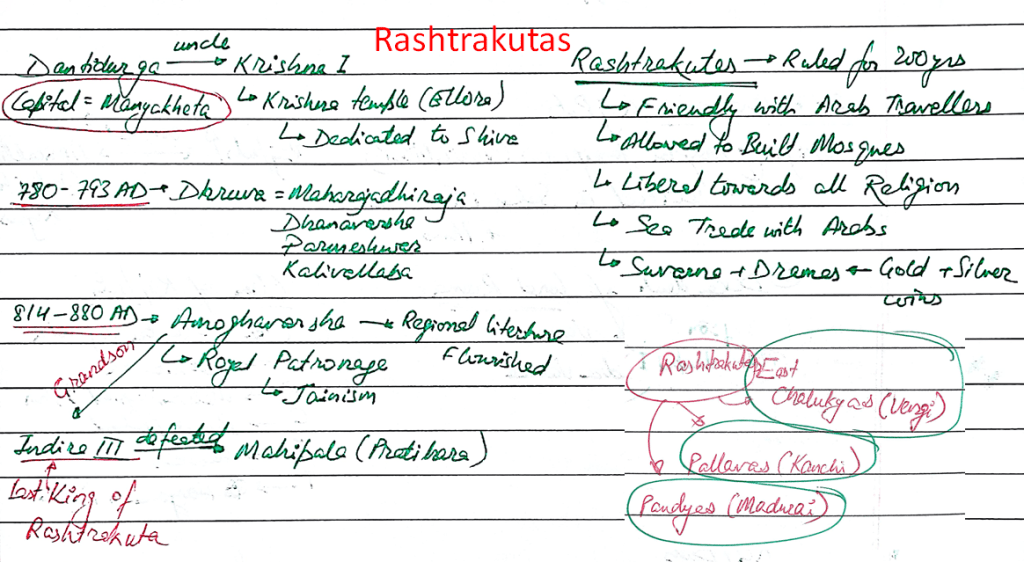 Rashtrakutas
Dantidurga uncle → Krishna I
Capital = Manyakheta
↳ Krishna temple (Ellora)
↳ Dedicated to Shiva
780-793 AD → Dhruva = Maharajadhiraja
Dhanavarsha
Parmeshwer
Kalivallaba
814-880 AD → Amoghavarsha → Regional literture
Flourished
↳ Royal Patronage
↳ Jainism
Grandson
Indira III defeated → Mahipala (Pratihara)
Last King of
Rashtrakuta
Rashtrakutes → Ruled for 200 yrs
↳ Friendly with Arab Travellers
↳ Allowed to Build Mosques
↳ Liberal towards all Religion
↳ Sea Trade with Arabs
↳ Suvarna + Dramas ← Gold + Silver
coins
Rashtrakutas
East
Chalukyas (Vengi)
Pallavas (Kanchi)
Pandyas (Madurai)